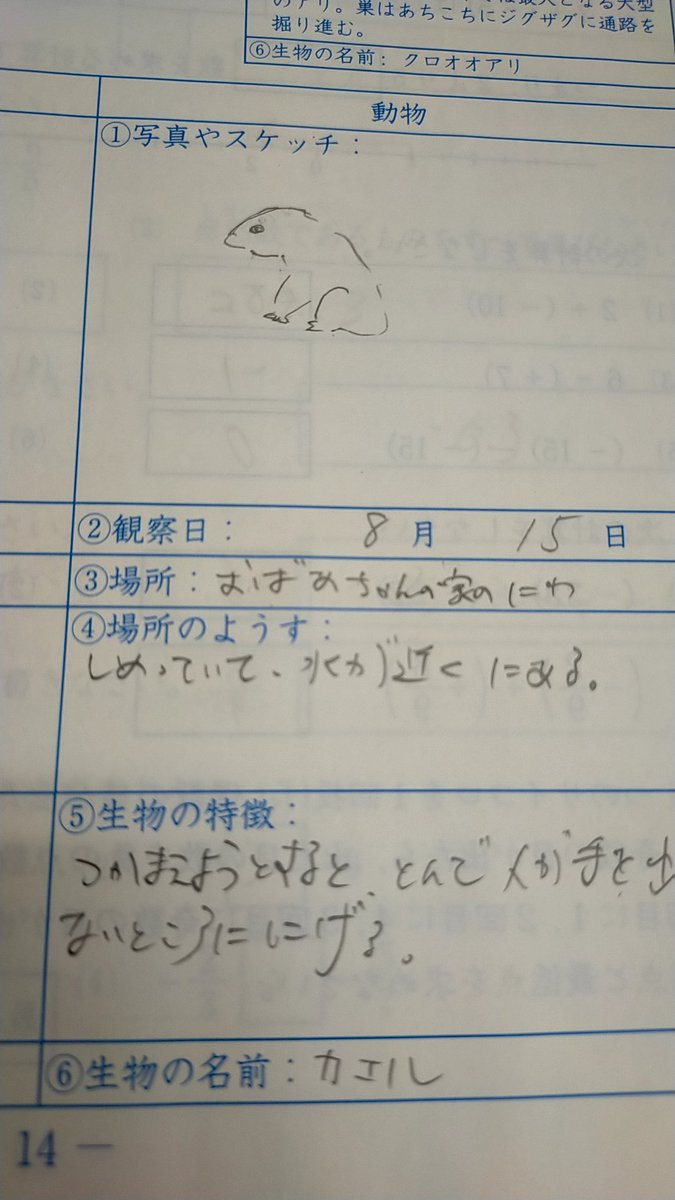 は最大となる大型
のアリ。巣はあちこちにジグザグに通路を
掘り進む。
⑥生物の名前: クロオオアリ
動物
①写真やスケッチ:
②観察日: 8月 15日
③場所: おばあちゃんの家のにわ
④場所のようす:
しめっていて、水が近くにある。
⑤生物の特徴:
つかまえようとすると、とんで人が手を出
ないところににげる。
⑥生物の名前: カエル
14 −